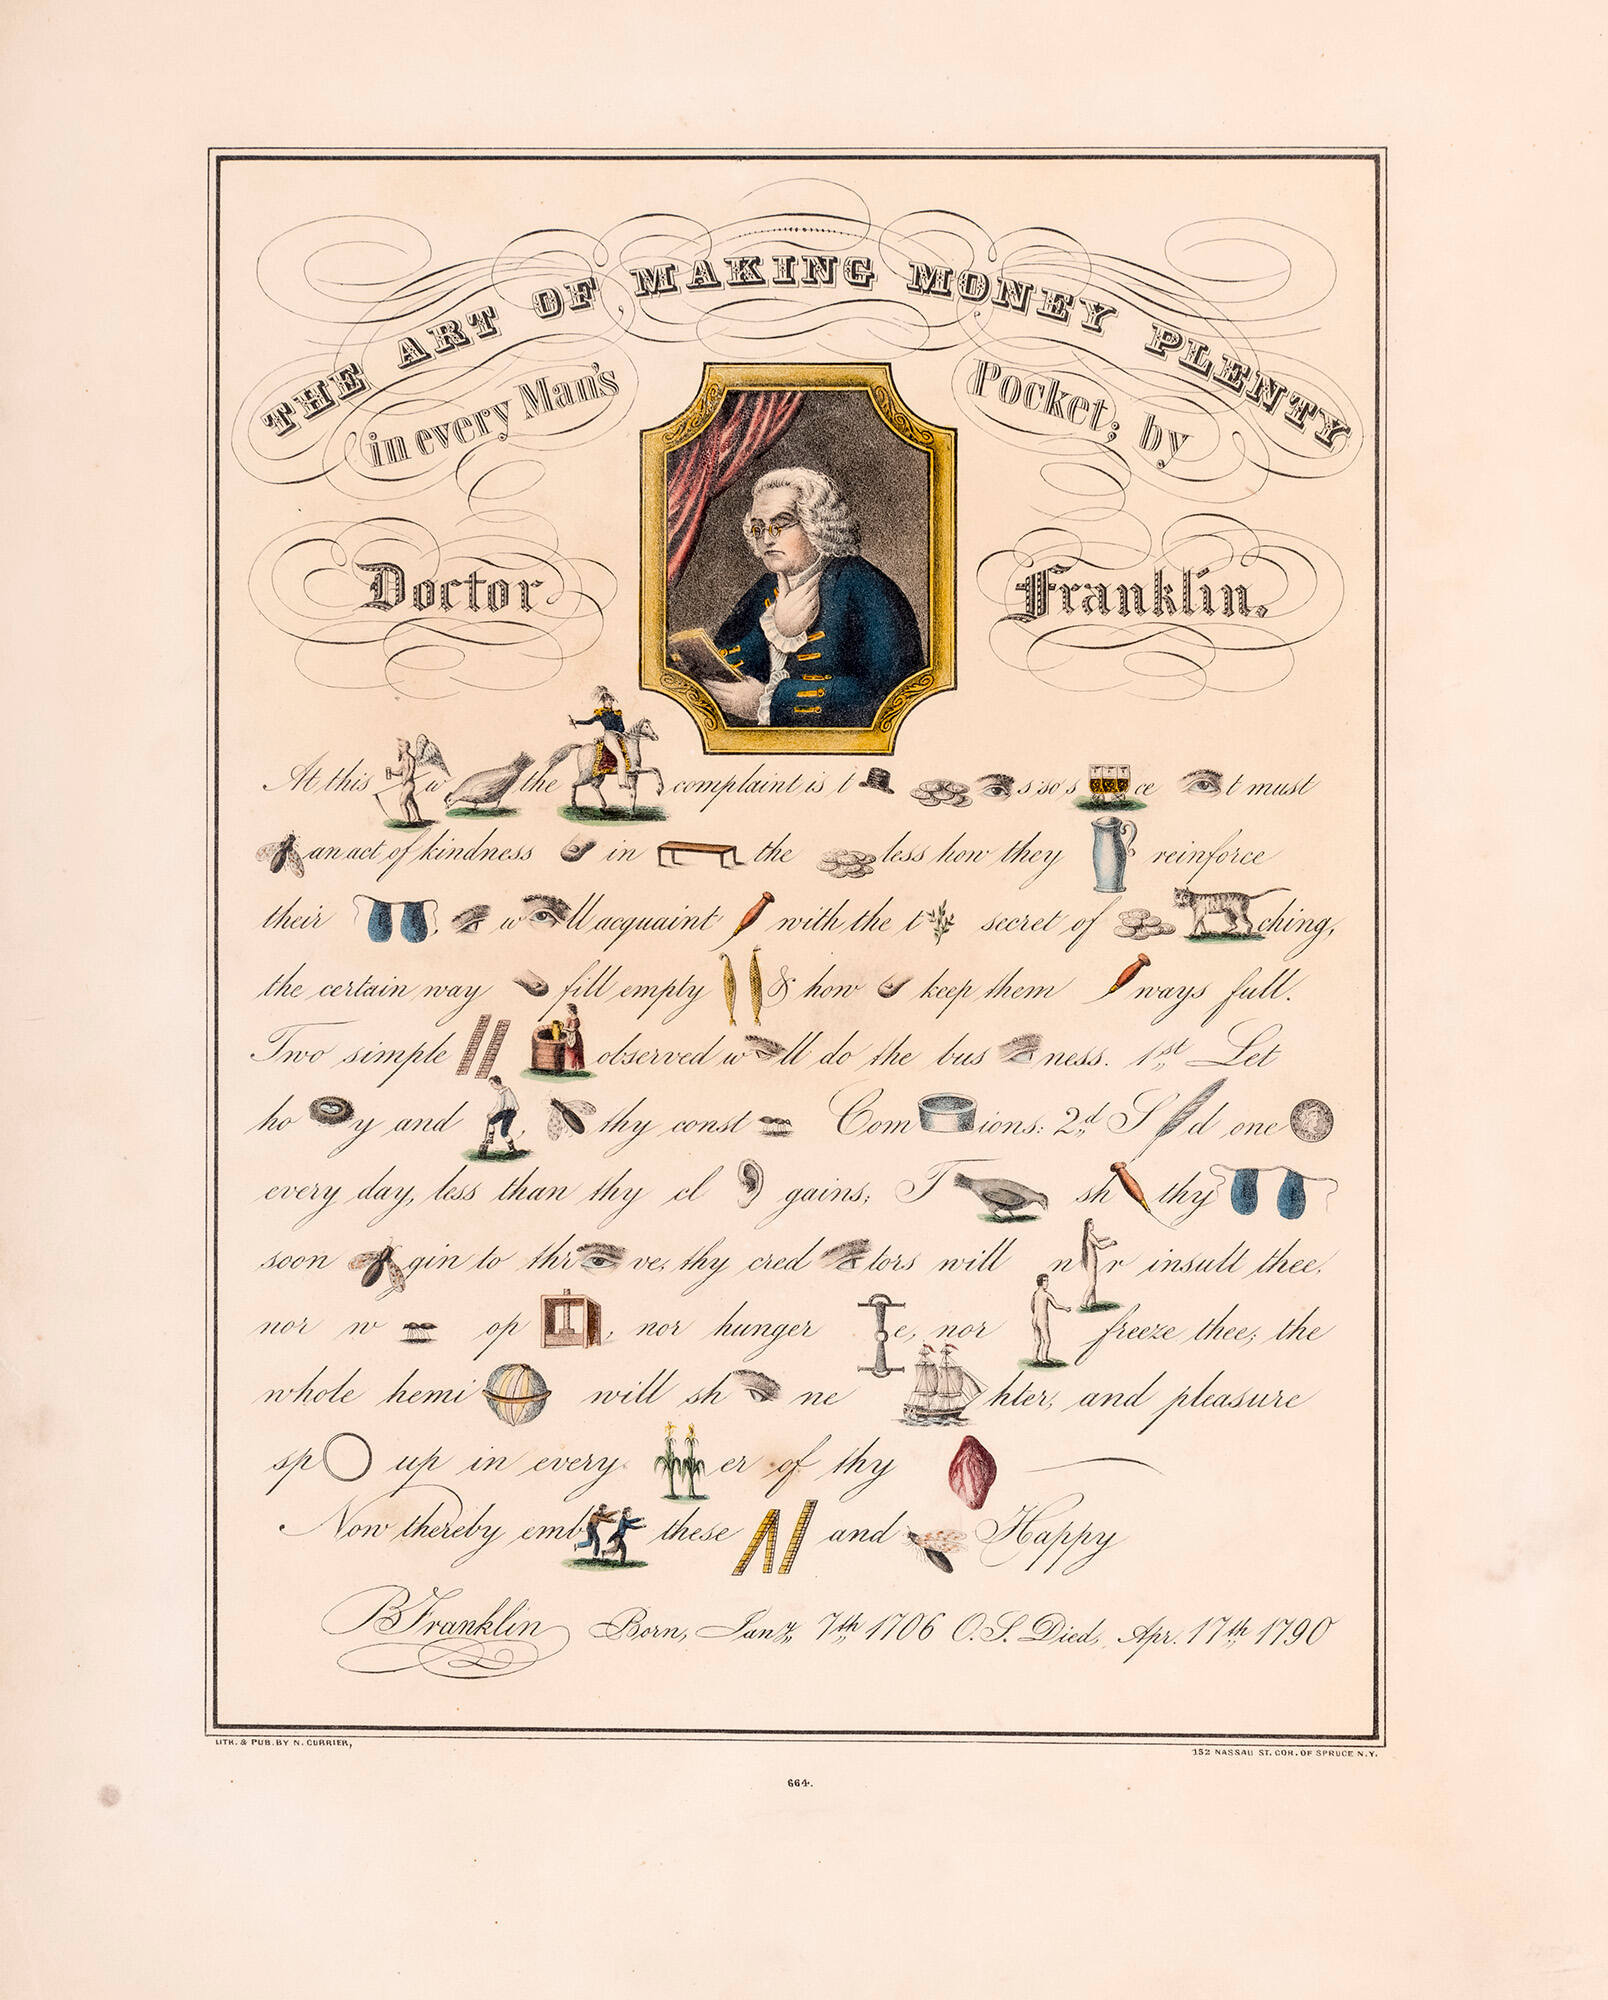 THE ART OF MAKING MONEY PLENTY
in every Man's Pocket; by
Doctor Franklin.
At this w the complaint is t s so s ce t must
an act of kindness in the less how they reinforce
their , w ll acquaint with the t secret of ching,
the certain way fill empty & how keep them ways full.
Two simple observed w ll do the bus ness. 1st Let
ho y and , thy const Com ions: 2d S d one
every day, less than thy cl gains; T sh thy
soon gin to thr ve; thy cred tors will n r insult thee,
nor w op , nor hunger e, nor freeze thee; the
whole hemi will sh ne hter, and pleasure
sp up in every er of thy
Now thereby emb these and Happy
B Franklin Born, Jany. 7th 1706 O.S. Died, Apr. 17th 1790
LITH. & PUB. BY N. CURRIER,
152 NASSAU ST. COR. OF SPRUCE N.Y.
664.